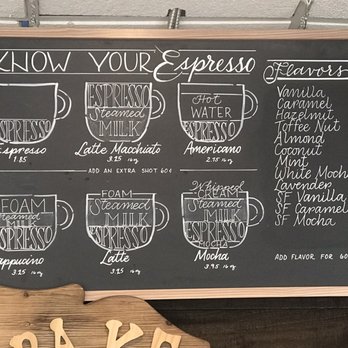 KNOW YOUR Espresso
ESPRESSO
Espresso
1.85
ESPRESSO
Steamed
MILK
Latte Macchiato
3.25 16 oz
Hot
WATER
ESPRESSO
Americano
2.75 16 oz
ADD AN EXTRA SHOT 60¢
FOAM
Steamed
MILK
ESPRESSO
appucino
3.25 16 oz
FOAM
Steamed
MILK
ESPRESSO
Latte
3.25 16 oz
Whipped
CREAM
Steamed
MILK
ESPRESSO
MOCHA
Mocha
3.95 16 oz
Flavors
Vanilla
Caramel
Hazelnut
Toffee Nut
Almond
Coconut
Mint
White Mocha
Lavender
SF Vanilla
SF Caramel
SF Mocha
ADD FLAVOR FOR 60